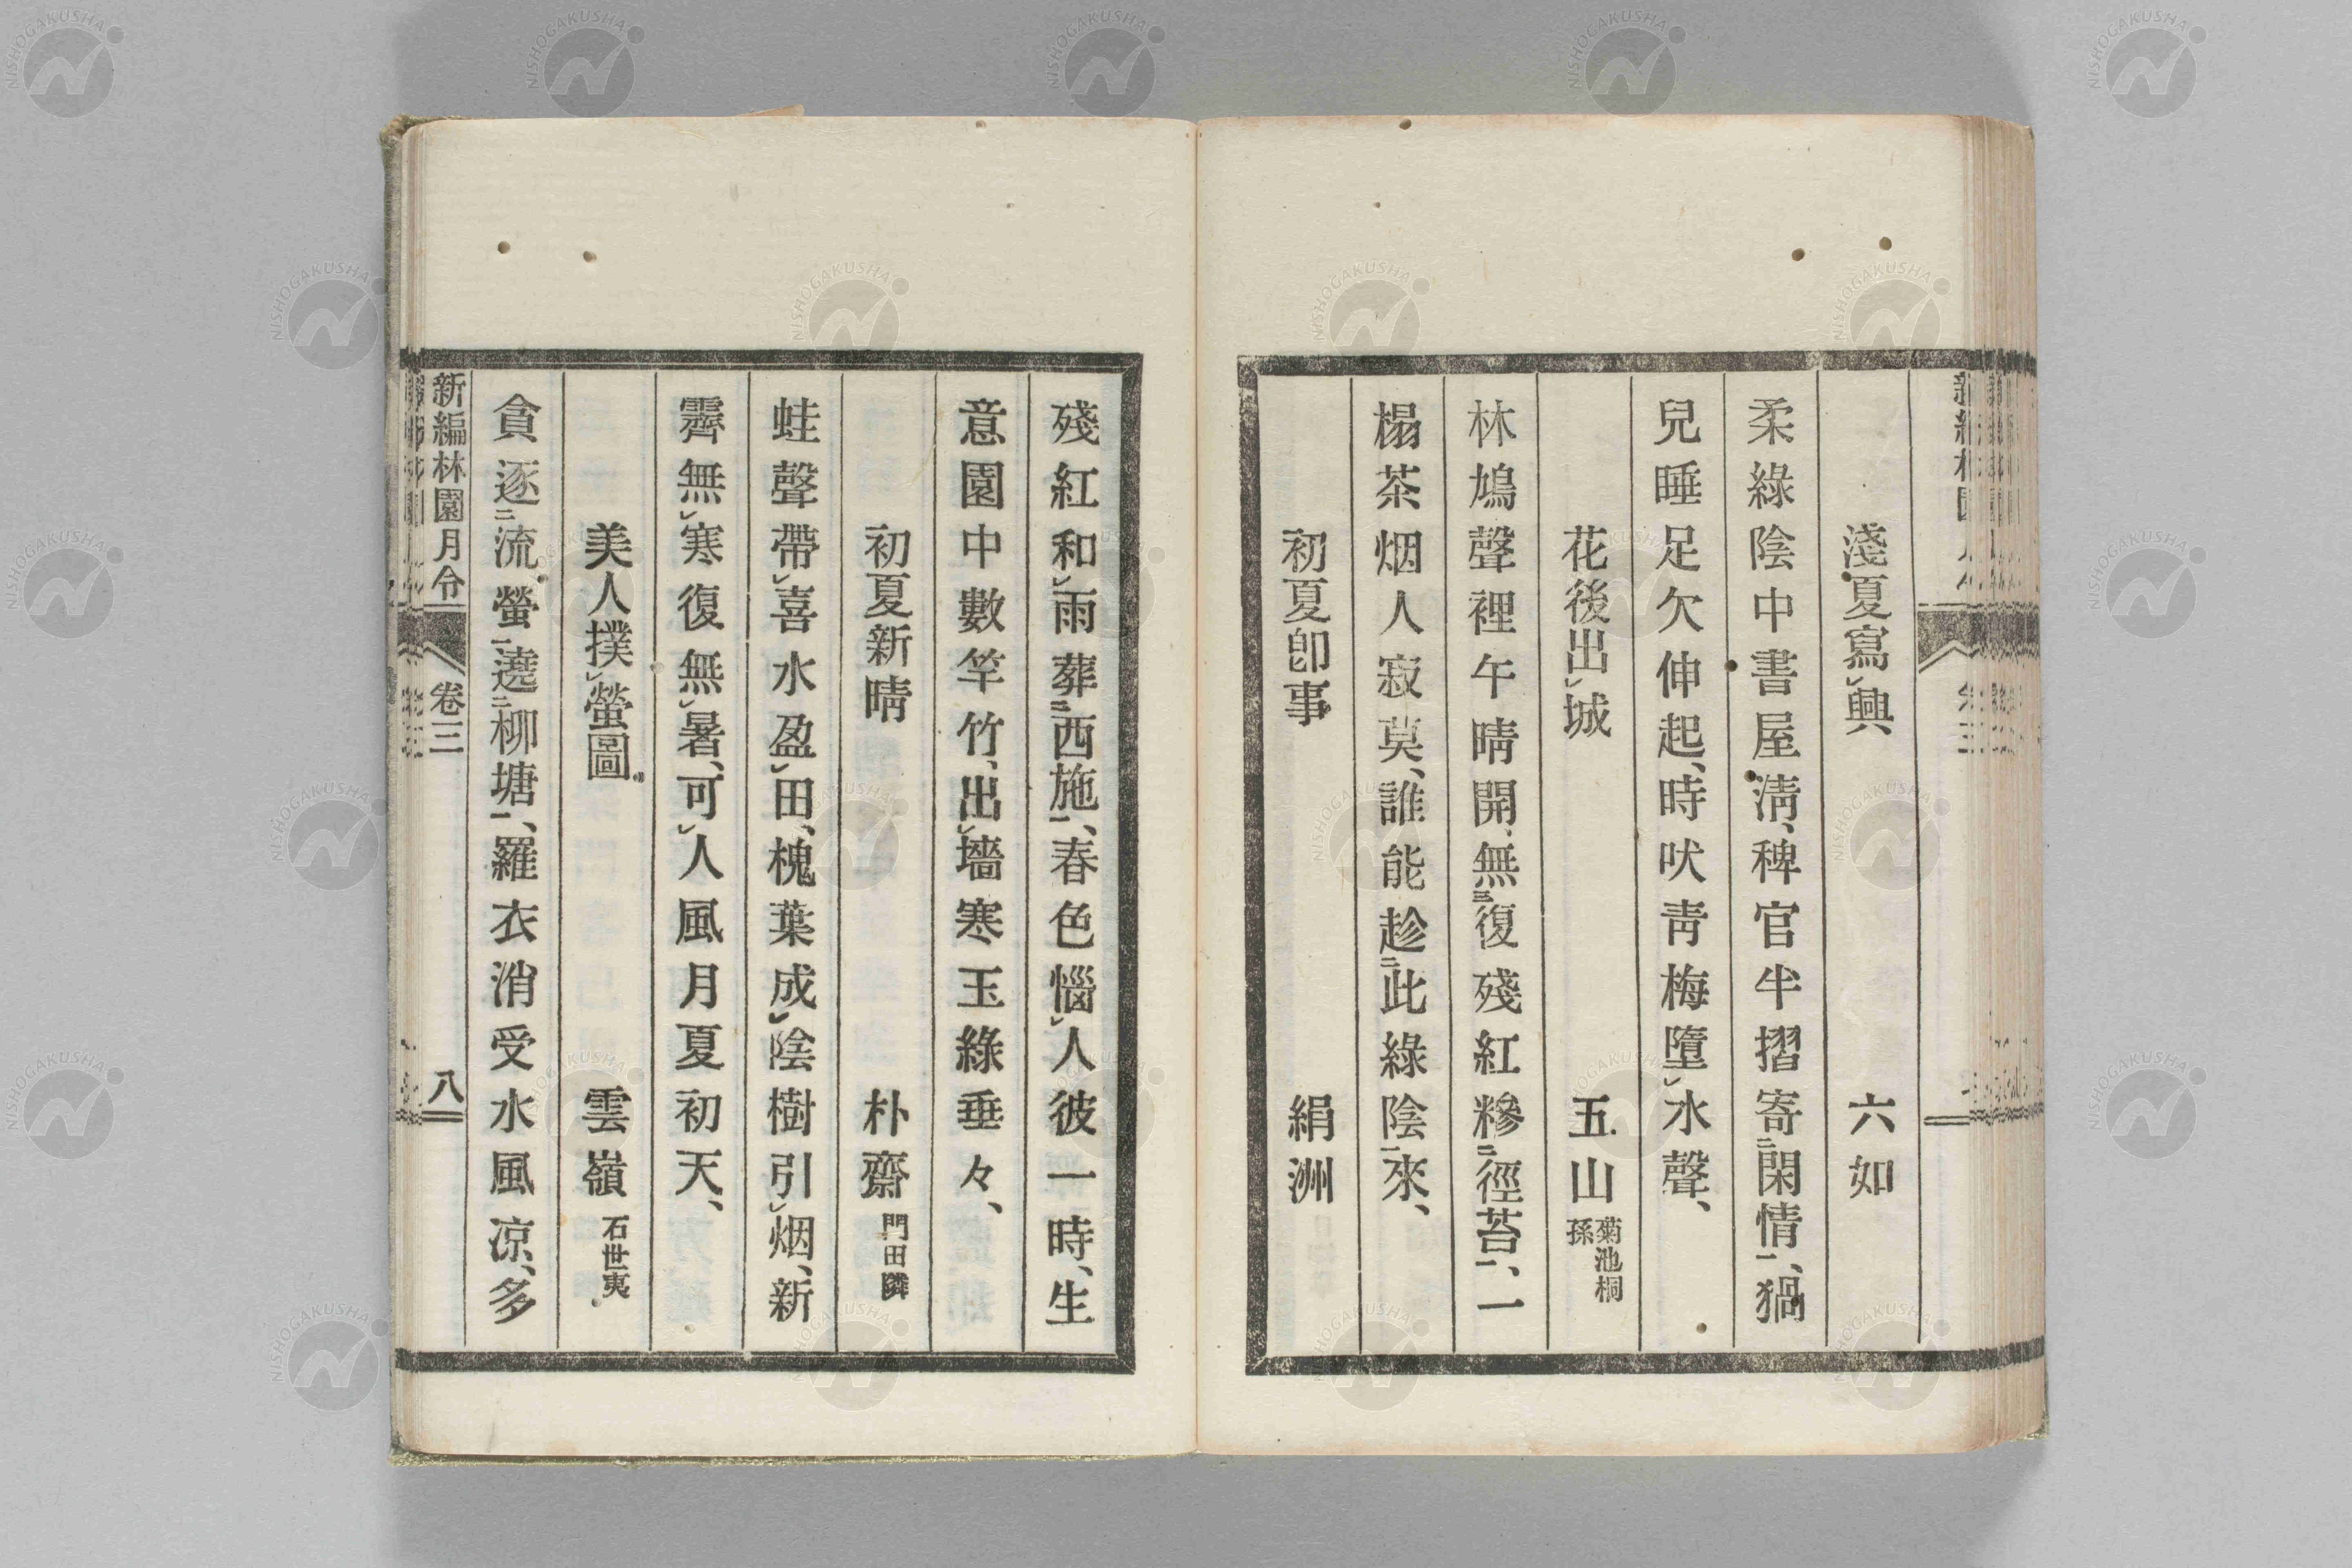 淺夏寫興 六如
柔綠陰中書屋淸、稗官半摺寄閑情、猧
兒睡足欠伸起、時吠靑梅墮水聲、
花後出城 五山 菊池桐孫
林鳩聲裡午晴開、無復殘紅糝徑苔、一
榻茶烟人寂莫、誰能趁此綠陰來、
初夏卽事 絹洲
殘紅和雨葬西施、春色惱人彼一時、生
意園中數竿竹、出墻寒玉綠垂々、
初夏新晴 朴齋 門田隣
蛙聲帶喜水盈田、槐葉成陰樹引烟、新
霽無寒復無暑、可人風月夏初天、
美人撲螢圖 雲嶺 石世夷
貪逐流螢遶柳塘、羅衣消受水風凉、多
新編林園月令 卷三 八
NISHOGAKUSHA